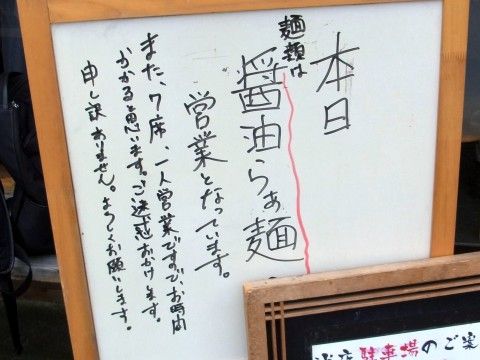 本日
麺類は
醤油らぁ麺
営業となっています。
また、7席、一人営業ですので、お時間
かかると思います。ご迷惑おかけします。
申し訳ありません。よろしくお願いします。
駐車場のご案